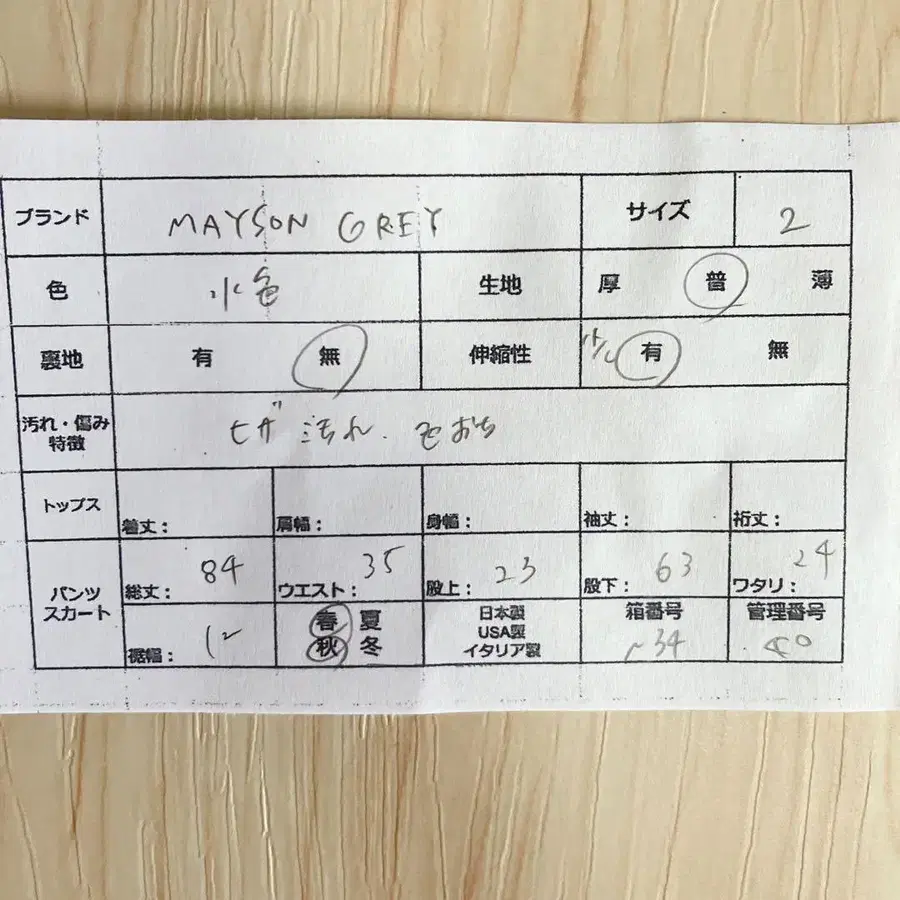 ブランド MAYSON GREY サイズ 2
色 水色 生地 厚 普 薄
裏地 有 無 伸縮性 有 無
汚れ・傷み
特徴
ヒザ 汚れ.
トップス 着丈: 肩幅: 身幅: 袖丈: 裄丈:
パンツ
スカート
総丈: 84 ウエスト: 35 股上: 23 股下: 63 ワタリ: 24
裾幅: 12
春 夏
秋 冬
日本製
USA製
イタリア製
箱番号
34
管理番号